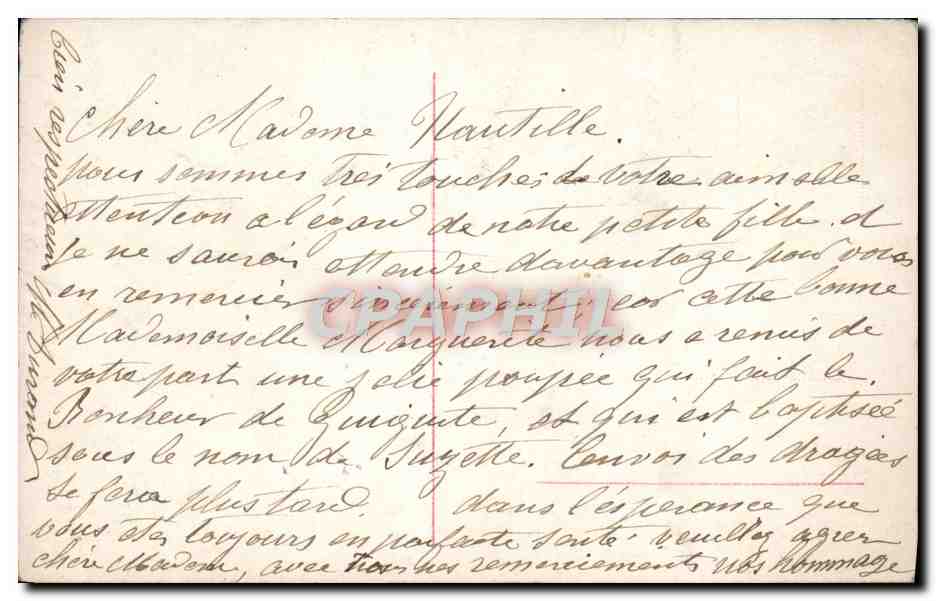 Chère Madame Nautille.
nous sommes très touchés de votre aimable
attention a l'égard de notre petite fille. et
je ne saurais attendre davantage pour vous
en remercier sincèrement, car cette bonne
Mademoiselle Marguerite nous a remis de
votre part une jolie poupée qui fait le
Bonheur de Guiguite, et qui est baptisée
sous le nom de Suzette. l'envoi des dragées
se fera plus tard. dans l'espérance que
vous êtes toujours en parfaite santé veuillez agréer
chère Madame, avec nos remerciements nos hommage
respectueux Durand
CPAPHIL